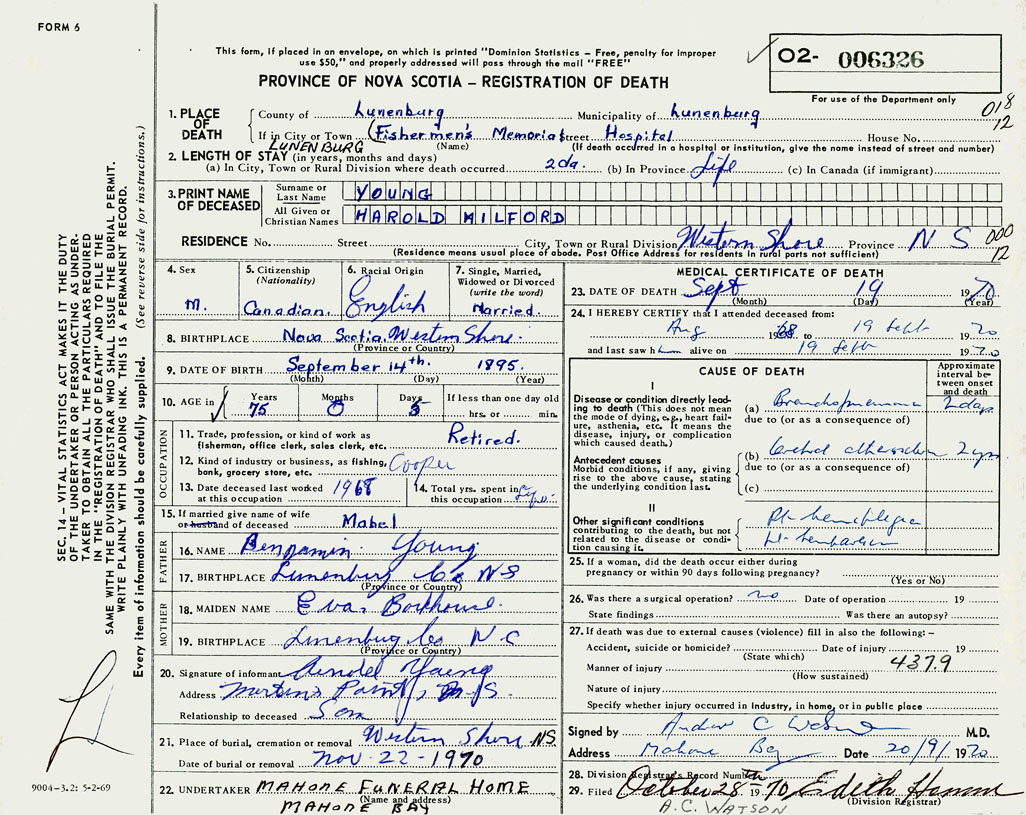 FORM 6
This form, if placed in an envelope, on which is printed "Dominion Statistics – Free, penalty for improper
use $50," and properly addressed will pass through the mail "FREE"
O2- 006326
PROVINCE OF NOVA SCOTIA – REGISTRATION OF DEATH
For use of the Department only
018
12
1. PLACE OF DEATH
County of Lunenburg Municipality of Lunenburg
If in City or Town (Fishermen's Memorial Street Hospital House No.
LUNENBURG (Name) (If death occurred in a hospital or institution, give the name instead of street and number)
2. LENGTH OF STAY (in years, months and days)
(a) In City, Town or Rural Division where death occurred 2da. (b) In Province Life (c) In Canada (if immigrant)
3. PRINT NAME OF DECEASED
Surname or Last Name YOUNG
All Given or Christian Names HAROLD MILFORD
RESIDENCE No. Street City, Town or Rural Division Western Shore Province N S
000
12
(Residence means usual place of abode. Post Office Address for residents in rural parts not sufficient)
4. Sex M.
5. Citizenship (Nationality) Canadian.
6. Racial Origin English
7. Single, Married, Widowed or Divorced (write the word) Married.
8. BIRTHPLACE Nova Scotia. Western Shore.
(Province or Country)
9. DATE OF BIRTH September 14th. 1895.
(Month) (Day) (Year)
10. AGE in Years 75 Months 0 Days 5 If less than one day old
hrs. or min.
OCCUPATION
11. Trade, profession, or kind of work as
fishermen, office clerk, sales clerk, etc. Retired.
12. Kind of industry or business, as fishing,
bank, grocery store, etc. Cooper
13. Date deceased last worked
at this occupation 1968
14. Total yrs. spent in
this occupation
15. If married give name of wife
or husband of deceased Mabel
FATHER
16. NAME Benjamin Young
17. BIRTHPLACE Lunenburg Co NS
(Province or Country)
MOTHER
18. MAIDEN NAME Eva
19. BIRTHPLACE Lunenburg Co N C
(Province or Country)
20. Signature of informant Young
Address Martins Point, N.S.
Relationship to deceased Son
21. Place of burial, cremation or removal Western Shore NS.
Date of burial or removal Nov. 22 - 1970
22. UNDERTAKER MAHONE FUNERAL HOME
(Name and address)
MAHONE BAY
MEDICAL CERTIFICATE OF DEATH
23. DATE OF DEATH Sept 19 1970
(Month) (Day) (Year)
24. I HEREBY CERTIFY that I attended deceased from:
Aug 1968 to 19 Sept 1970
and last saw him alive on 19 Sept 1970
CAUSE OF DEATH
Approximate interval between onset and death
I
Disease or condition directly leading to death (This does not mean the mode of dying, e.g., heart failure, asthenia, etc. It means the disease, injury, or complication which caused death.)
(a) Bronchopneumonia 2 days
due to (or as a consequence of)
Antecedent causes
Morbid conditions, if any, giving rise to the above cause, stating the underlying condition last.
(b) 2 yrs
due to (or as a consequence of)
(c)
II
Other significant conditions
contributing to the death, but not related to the disease or condition causing it.
Rt. hemiplegia
25. If a woman, did the death occur either during
pregnancy or within 90 days following pregnancy?
(Yes or No)
26. Was there a surgical operation? no Date of operation 19
State findings Was there an autopsy?
27. If death was due to external causes (violence) fill in also the following: –
Accident, suicide or homicide? Date of injury 19
(State which)
Manner of injury 437.9
(How sustained)
Nature of injury
Specify whether injury occurred in industry, in home, or in public place
Signed by Andrew C M.D.
Address Mahone Bay Date 20/9/1970
28. Division Registrar's Record Number
29. Filed October 28th 1970, Edith
(Division Registrar)
A.C. WATSON
SEC. 14 – VITAL STATISTICS ACT MAKES IT THE DUTY
OF THE UNDERTAKER OR PERSON ACTING AS UNDER-
TAKER TO OBTAIN ALL THE PARTICULARS REQUIRED
IN THE "REGISTRATION OF DEATH" AND TO FILE THE
SAME WITH THE DIVISION REGISTRAR WHO SHALL ISSUE THE BURIAL PERMIT.
WRITE PLAINLY WITH UNFADING INK. THIS IS A PERMANENT RECORD.
Every item of information should be carefully supplied. (See reverse side for instructions.)
9004–3.2: 5-2-69